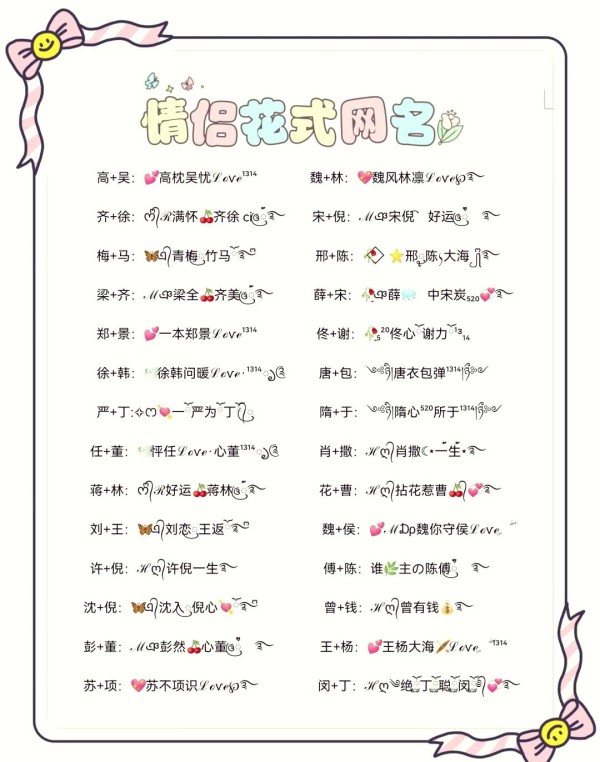 情侣花式网名
高+吴：💕高枕吴忧𝓛𝓸𝓿𝓮¹³¹⁴
魏+林：💖魏风林凛𝓛𝓸𝓿𝓮
齐+徐：ℛ满怀🍒齐徐 ci
宋+倪：ℳ宋倪 好运
梅+马：🦋青梅 竹马
邢+陈：🥀⭐邢 陈 大海
梁+齐：ℳ梁全🍒齐美
薛+宋：🥀薛 中宋炭₅₂₀💞
郑+景：💕一本郑景𝓛𝓸𝓿𝓮¹³¹⁴
佟+谢：🥀₅²⁰佟心 谢力¹³₁₄
徐+韩：徐韩问暖𝓛𝓸𝓿𝓮·¹³¹⁴
唐+包：唐衣包弹¹³¹⁴
严+丁:✧ღ💘一 严为 丁
隋+于：隋心⁵²⁰所于¹³¹⁴
任+董：怦任𝓛𝓸𝓿𝓮·心董¹³¹⁴
肖+撒：ℋღ肖撒☾⋆一生⋆
蒋+林：ℛ好运🍒蒋林
花+曹：ℋღ拈花惹曹🍒💞
刘+王：🦋刘恋 王返
魏+侯：💕魏你守侯𝓛𝓸𝓿𝓮
许+倪：ℋღ许倪一生
傅+陈：谁🌿主の陈傅
沈+倪：🦋沈入 倪心💘
曾+钱：ℋღ曾有钱💰
彭+董：ℳ彭然🍒心董
王+杨：💕王杨大海𝓛𝓸𝓿𝓮 ¹³¹⁴
苏+项：💖苏不项识𝓛𝓸𝓿𝓮
闵+丁：ℋღ绝 丁 聪 闵💞